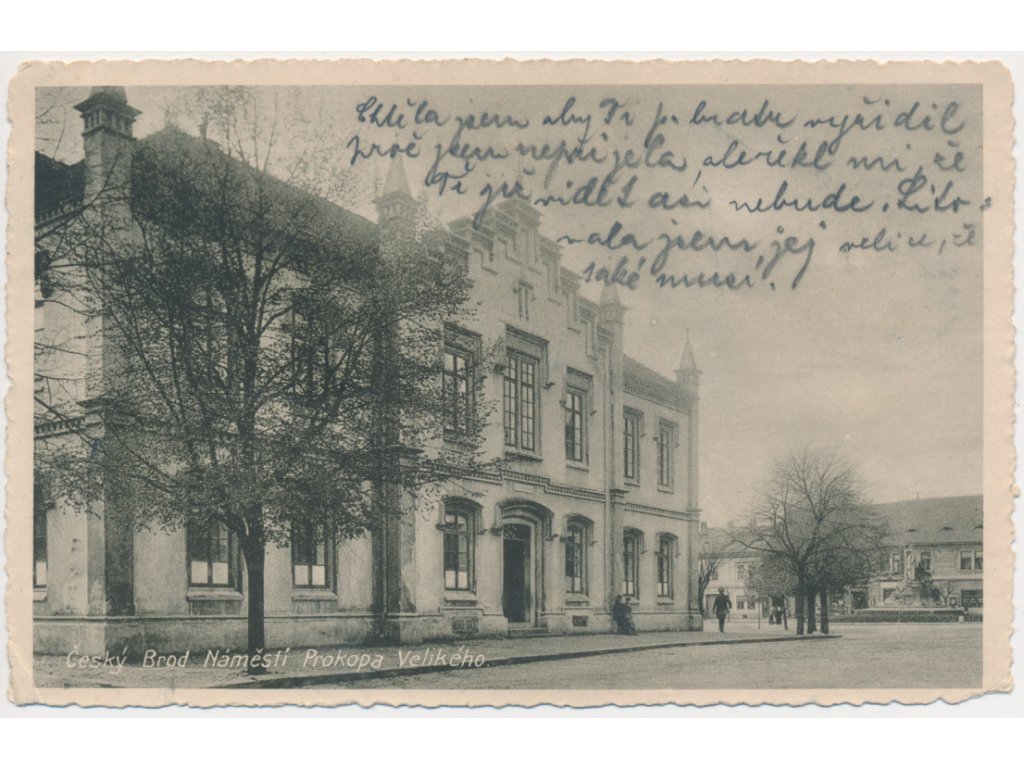 Chtěla jsem aby Ti p. bratr vyřídil
proč jsem nepřijela, ale řekl mi, že
Tě již vidět asi nebude. Lito-
vala jsem jej velice, že
také musí.
Český Brod Náměstí Prokopa Velikého.